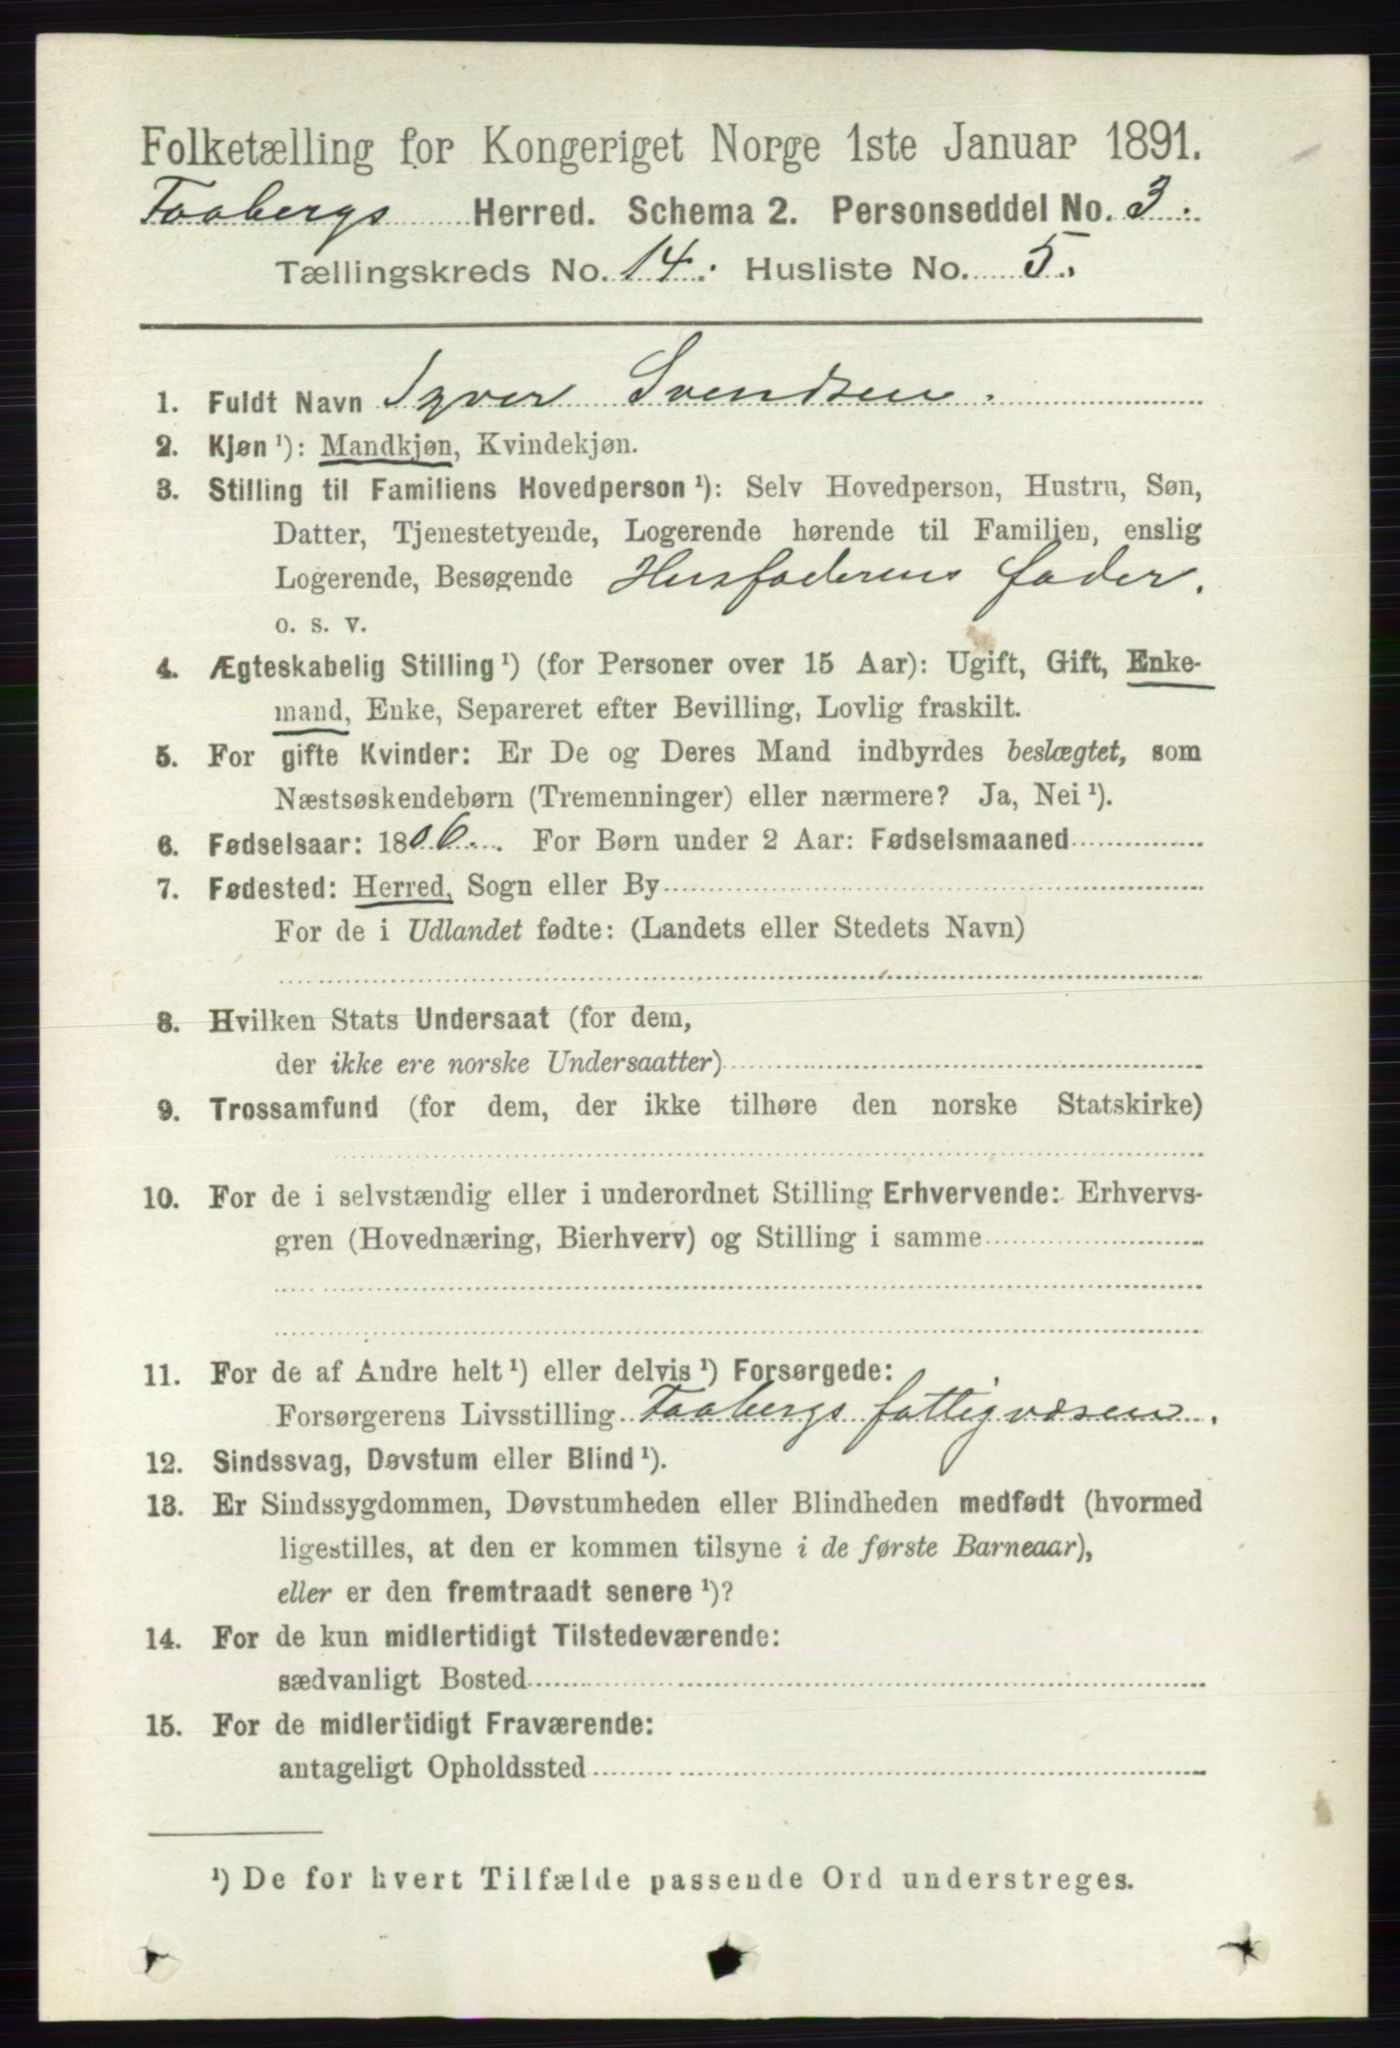 Folketælling for Kongeriget Norge 1ste Januar 1891.
Faabergs Herred. Schema 2. Personseddel No. 3.
Tællingskreds No. 14. Husliste No. 5.
1. Fuldt Navn Syver Svendsen.
2. Kjøn ¹): Mandkjøn, Kvindekjøn.
3. Stilling til Familiens Hovedperson ¹): Selv Hovedperson, Hustru, Søn,
Datter, Tjenestetyende, Logerende hørende til Familien, enslig
Logerende, Besøgende Husfaderens fader.
o. s. v.
4. Ægteskabelig Stilling ¹) (for Personer over 15 Aar): Ugift, Gift, Enke-
mand, Enke, Separeret efter Bevilling, Lovlig fraskilt.
5. For gifte Kvinder: Er De og Deres Mand indbyrdes beslægtet, som
Næstsøskendebørn (Tremenninger) eller nærmere? Ja, Nei ¹).
6. Fødselsaar: 1806. For Børn under 2 Aar: Fødselsmaaned
7. Fødested: Herred, Sogn eller By
For de i Udlandet fødte: (Landets eller Stedets Navn)
8. Hvilken Stats Undersaat (for dem,
der ikke ere norske Undersaatter)
9. Trossamfund (for dem, der ikke tilhøre den norske Statskirke)
10. For de i selvstændig eller i underordnet Stilling Erhvervende: Erhvervs-
gren (Hovednæring, Bierhverv) og Stilling i samme
11. For de af Andre helt ¹) eller delvis ¹) Forsørgede:
Forsørgerens Livsstilling Faabergs fattigvæsen.
12. Sindssvag, Døvstum eller Blind ¹).
13. Er Sindssygdommen, Døvstumheden eller Blindheden medfødt (hvormed
ligestilles, at den er kommen tilsyne i de første Barneaar),
eller er den fremtraadt senere ¹)?
14. For de kun midlertidigt Tilstedeværende:
sædvanligt Bosted
15. For de midlertidigt Fraværende:
antageligt Opholdssted
¹) De for hvert Tilfælde passende Ord understreges.